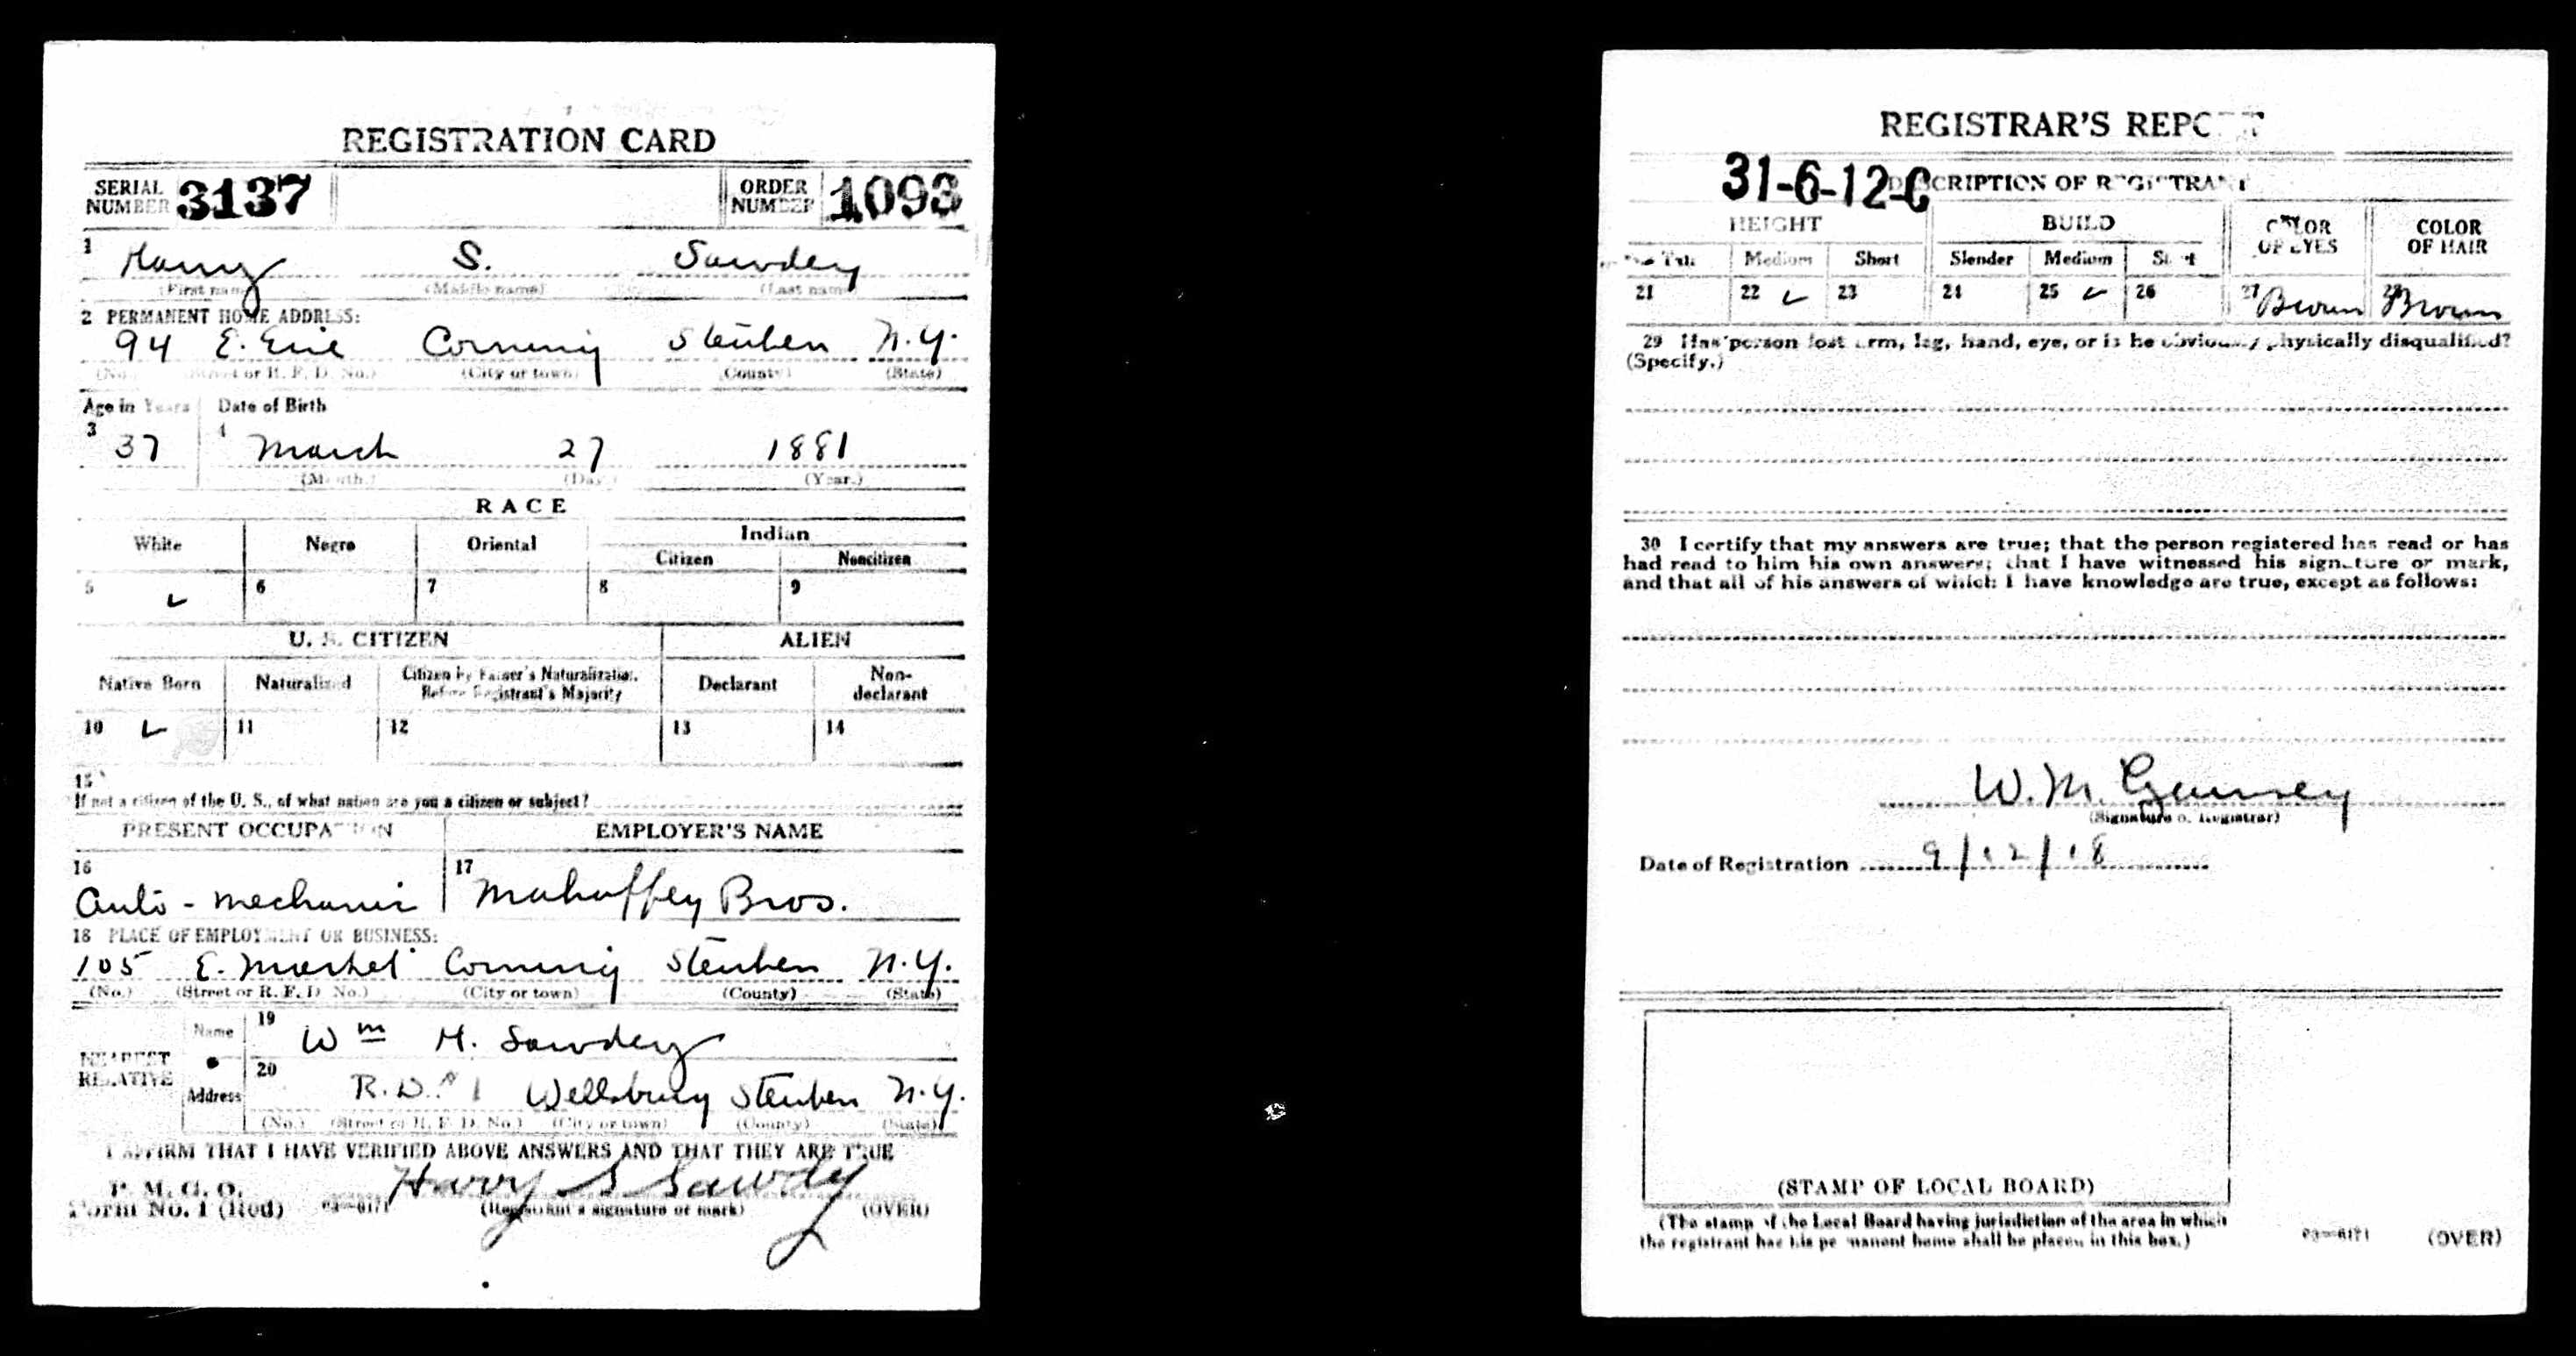 REGISTRATION CARD
SERIAL NUMBER 3137 ORDER NUMBER 1093
1 Harry S. Sawdey
(First name) (Middle name) (Last name)
2 PERMANENT HOME ADDRESS:
94 E. Erie Corning Steuben N.Y.
(No.) (Street or R. F. D. No.) (City or town) (County) (State)
Age in Years Date of Birth
3 37 4 March 27 1881
(Month.) (Day.) (Year.)
RACE
White Negro Oriental Indian
Citizen Noncitizen
5 ✓ 6 7 8 9
U. S. CITIZEN ALIEN
Native Born Naturalized Citizen by Father's Naturalization Before Registrant's Majority Declarant Non-declarant
10 ✓ 11 12 13 14
15
If not a citizen of the U. S., of what nation are you a citizen or subject?
PRESENT OCCUPATION EMPLOYER'S NAME
16 Auto - mechanic 17 Mahaffey Bros.
18 PLACE OF EMPLOYMENT OR BUSINESS:
105 E. Market Corning Steuben N.Y.
(No.) (Street or R. F. D. No.) (City or town) (County) (State)
NEAREST RELATIVE
Name 19 Wm H. Sawdey
Address 20 R.D. #1 Wellsburg Steuben N.Y.
(No.) (Street or R. F. D. No.) (City or town) (County) (State)
I AFFIRM THAT I HAVE VERIFIED ABOVE ANSWERS AND THAT THEY ARE TRUE
P. M. G. O.
Form No. 1 (Red) 03—6171 Harry S Sawdey (OVER)
(Registrant's signature or mark)
REGISTRAR'S REPORT
31-6-12-C
DESCRIPTION OF REGISTRANT
HEIGHT BUILD COLOR OF EYES COLOR OF HAIR
Tall Medium Short Slender Medium Stout
21 22 ✓ 23 24 25 ✓ 26 27 Brown 28 Brown
29 Has person lost arm, leg, hand, eye, or is he obviously physically disqualified?
(Specify.)
30 I certify that my answers are true; that the person registered has read or has
had read to him his own answers; that I have witnessed his signature or mark,
and that all of his answers of which I have knowledge are true, except as follows:
W. M. Guernsey
(Signature of Registrar)
Date of Registration 9/12/18
(STAMP OF LOCAL BOARD)
(The stamp of the Local Board having jurisdiction of the area in which
the registrant has his permanent home shall be placed in this box.)
03—6171 (OVER)